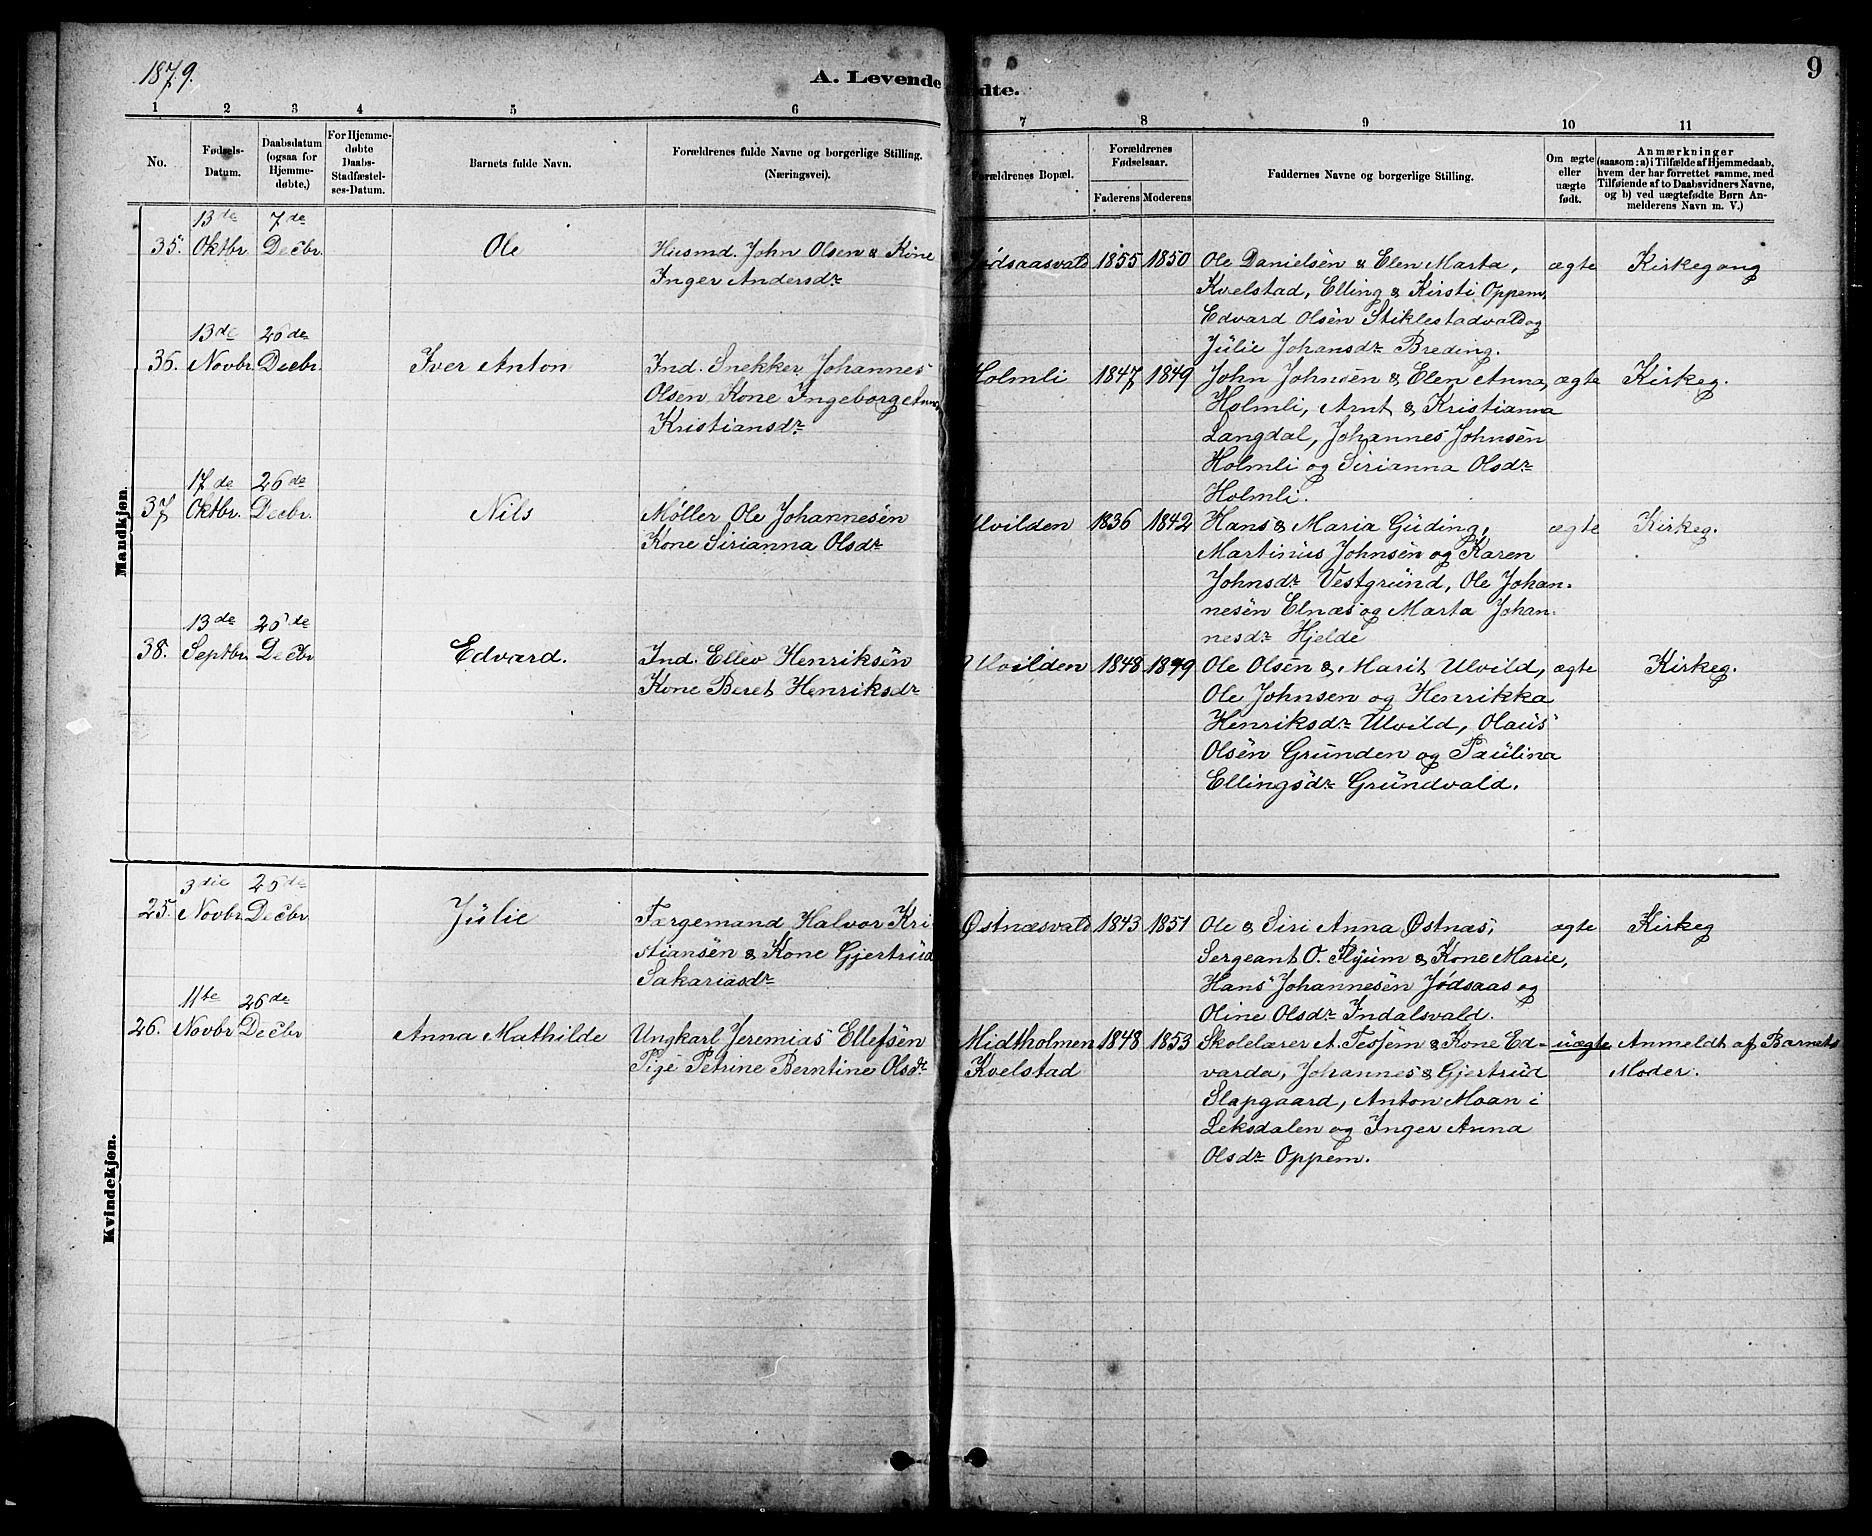 1879.
A. Levende
dte.
9
1
2
3
4
5
6
7
8
9
10
11
No.
Fødsels-
Datum.
Daabsdatum
(ogsaa for
Hjemme-
døbte.)
For Hjemme-
døbte
Daabs-
Stadfæstel-
ses-Datum.
Barnets fulde Navn.
Forældrenes fulde Navne og borgerlige Stilling.
(Næringsvei).
Forældrenes Bopæl.
Forældrenes
Fødselsaar.
Faderens
Moderens
Faddernes Navne og borgerlige Stilling.
Om ægte
eller
uægte
født.
Anmærkninger
(saasom: a) i Tilfælde af Hjemmedaab,
hvem der har forrettet samme, med
Tilføiende af to Daabsvidners Navne,
og b) ved uægtefødte Børn An-
melderens Navn m. V.)
Mandkjøn.
13de 7de
35. Oktbr. Decbr. Ole Husmd. John Olsen & Kone Jødsaasvald 1855 1850 Ole Danielsen & Elen Marta, ægte Kirkegang
Inger Andersdr Kvelstad, Elling & Kirsti Oppem,
Edvard Olsen Stiklestadvald og
Julie Johansdr Breding.
13de 26de
36. Novbr. Decbr. Iver Anton Ind. Snekker Johannes Holmli 1847 1849 John Johnsen & Elen Anna, ægte Kirkeg.
Olsen Kone Ingeborg Anna Holmli, Arnt & Kristianna
Kristiansdr Langdal, Johannes Johnsen
Holmli og Sirianna Olsdr
Holmli.
17de 26de
37 Oktbr. Decbr. Nils Møller Ole Johannesen Ulvilden 1836 1842 Hans & Maria Guding, ægte Kirkeg.
Kone Sirianna Olsdr Martinus Johnsen og Karen
Johnsdr Vestgrund, Ole Johan-
nesen Elnæs og Marta Johan-
nesdr Hjelde
13de 26de
38. Septbr. Decbr Edvard. Ind. Ellev Henriksen Ulvilden 1848 1849 Ole Olsen & Marit Ulvild, ægte Kirkeg.
Kone Beret Henriksdr Ole Johnsen og Henrikka
Henriksdr Ulvild, Olaus
Olsen Grunden og Paulina
Ellingsdr Grundvald.
Kvindekjøn.
3die 26de
25. Novbr. Decbr Julie Færgemand Halvor Kri Østnæsvald 1843 1851 Ole & Siri Anna Østnæs, ægte Kirkeg
stiansen & Kone Gjertrud Sergeant O. Flyum & Kone Marie,
Sakariasdr Hans Johannesen Jødsaas og
Oline Olsdr Indalsvald.
11te 26de
26. Novbr Decbr Anna Mathilde Ungkarl Jeremias Ellefsen Midtholmen 1848 1853 Skolelærer A. Tesjem & Kone Ed- uægte Anmeldt af Barnets
Pige Petrine Berntine Olsdr Kvelstad varda, Johannes & Gjertrud Moder.
Slapgaard, Anton Moan i
Leksdalen og Inger Anna
Olsdr Oppem.